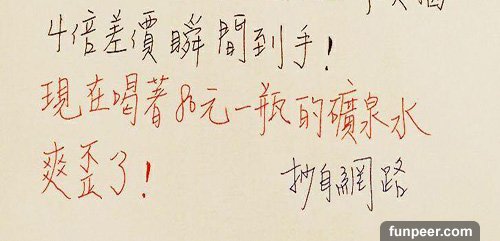 4倍差價瞬間到手!
現在喝著80元一瓶的礦泉水
爽歪了!
抄自網路
funpeer.com